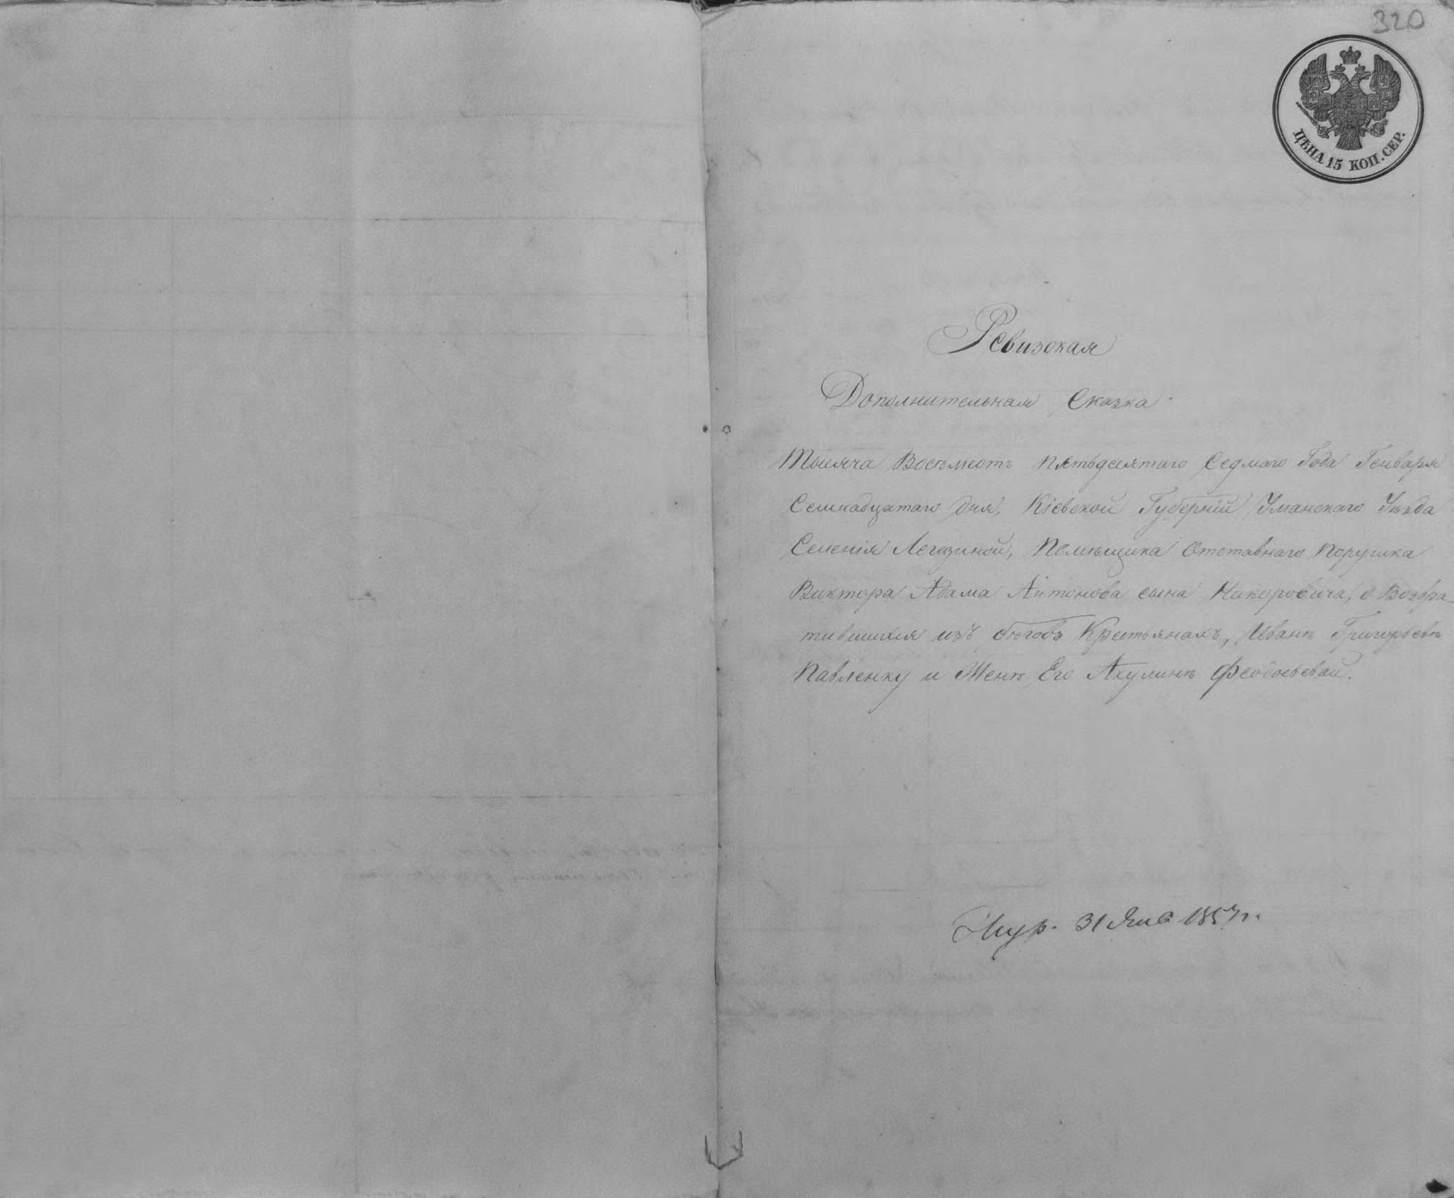 320
ЦѢНА 15 КОП. СЕР.
Ревизская
Дополнительная Сказка
Тысяча Восемьсотъ пятьдесятаго Седмаго Года Генваря
Семнадцатаго дня, Кіевской Губерніи Уманскаго Уѣзда
Селенія Легезиной, Помѣщика Отставнаго Поручика
Виктора Адама Антонова сына о Возвра
тившихся изъ бѣговъ Крестьянахъ, Иванѣ Григорьевѣ
Павленку и Женѣ Его Акулинѣ Федосьевой.
31 Янв 1857 г.